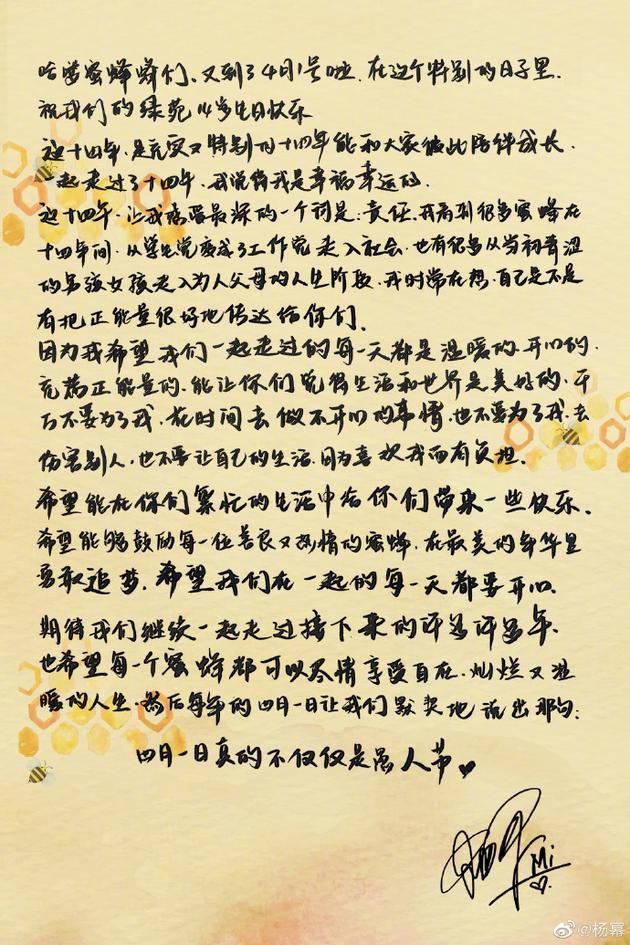 哈喽蜜蜂蜂们、又到了4月1号啦、在这个特别的日子里、
祝我们的绿苑14岁生日快乐
这十四年、是充实又特别的十四年能和大家彼此陪伴成长、
一起走过了十四年、我觉得我是幸福幸运的、
这十四年、让我感受最深的一个词是:责任、我看到很多蜜蜂在
十四年间、从学生党变成了工作党走入社会、也有很多从当初青涩
的男孩女孩走入为人父母的人生阶段、我时常在想、自己是不是
有把正能量很好地传达给你们、
因为我希望我们一起走过的每一天都是温暖的、开心的、
充满正能量的、能让你们觉得生活和世界是美好的、千
万不要为了我、花时间去做不开心的事情、也不要为了我、去
伤害别人、也不要让自己的生活、因为喜欢我而有负担、
希望能在你们繁忙的生活中给你们带来一些快乐、
希望能够鼓励每一位善良又热情的蜜蜂、在最美的年华里
勇敢追梦、希望我们在一起的每一天都要开心、
期待我们继续一起走过接下来的许多许多年、
也希望每一个蜜蜂都可以尽情享受自在、灿烂又温
暖的人生、然后每年的四月一日让我们默契地说出那句:
四月一日真的不仅仅是愚人节♥
杨幂
Mi
♡
@杨幂